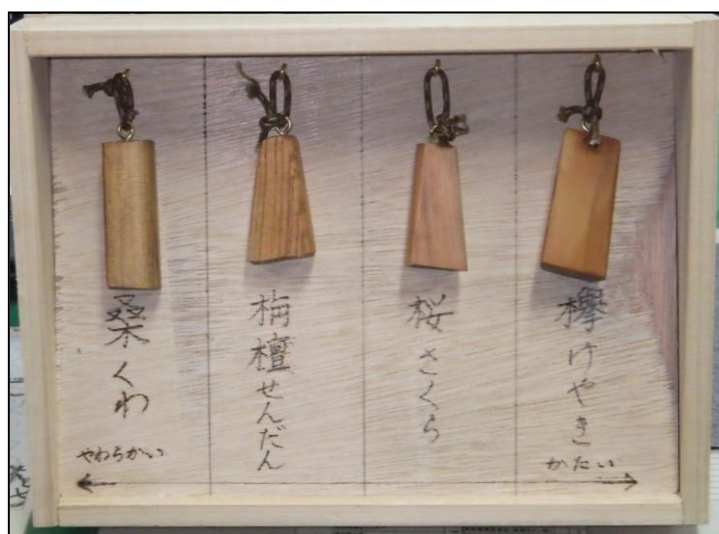 桑くわ
栴檀せんだん
桜さくら
欅けやき
やわらかい
かたい